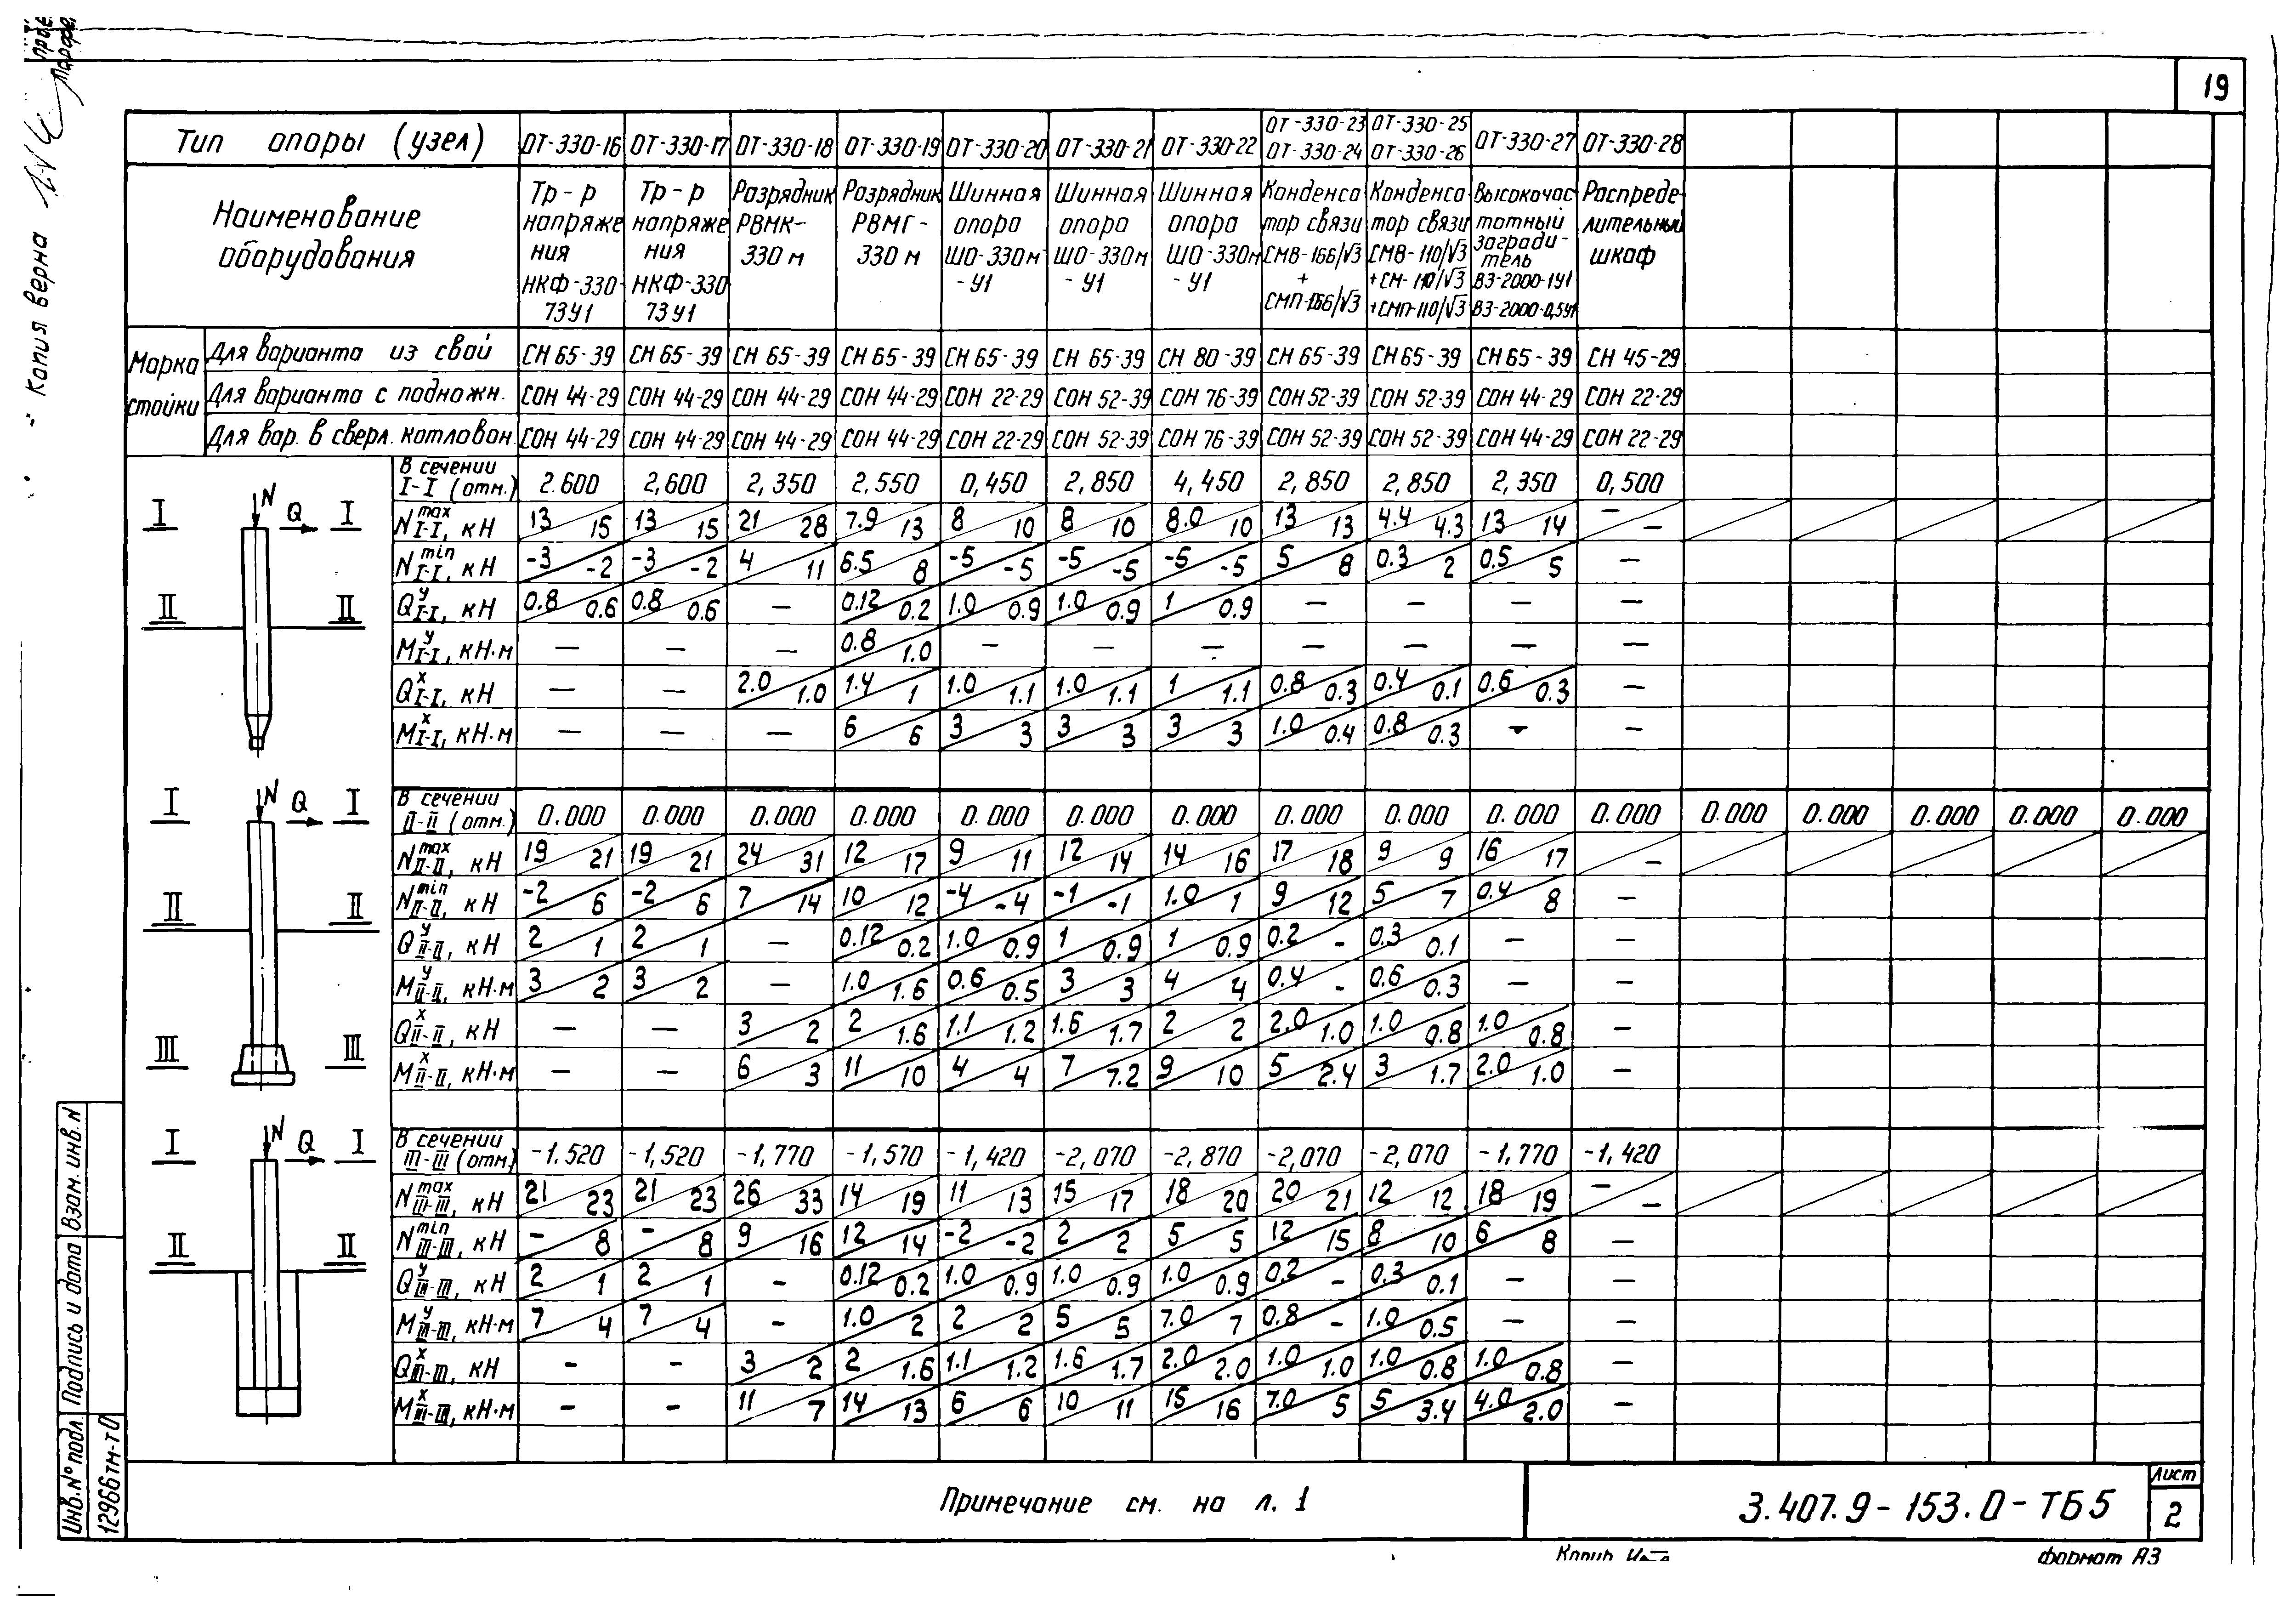 19
Копия верна
Тип опоры (узел) ОТ-330-16 ОТ-330-17 ОТ-330-18 ОТ-330-19 ОТ-330-20 ОТ-330-21 ОТ-330-22 ОТ-330-23 ОТ-330-24 ОТ-330-25 ОТ-330-26 ОТ-330-27 ОТ-330-28
Наименование оборудования
Тр-р напряже ния НКФ-330-73У1
Тр-р напряже ния НКФ-330 73У1
Разрядник РВМК-330м
Разрядник РВМГ-330м
Шинная опора ШО-330м-У1
Шинная опора ШО-330м-У1
Шинная опора ШО-330м-У1
Конденса тор связи СМВ-166/√3 + СМП-166/√3
Конденса тор связи СМВ-110/√3 +СМ-110/√3 +СМП-110/√3
Высокочас тотный загради-тель ВЗ-2000-1У1 ВЗ-2000-0,5У1
Распреде-лительный шкаф
Марка стойки
Для варианта из свай СН 65-39 СН 65-39 СН 65-39 СН 65-39 СН 65-39 СН 65-39 СН 80-39 СН 65-39 СН 65-39 СН 65-39 СН 45-29
Для варианта с подножн. СОН 44-29 СОН 44-29 СОН 44-29 СОН 44-29 СОН 22-29 СОН 52-39 СОН 76-39 СОН 52-39 СОН 52-39 СОН 44-29 СОН 22-29
Для вар. в сверл. котлован. СОН 44-29 СОН 44-29 СОН 44-29 СОН 44-29 СОН 22-29 СОН 52-39 СОН 76-39 СОН 52-39 СОН 52-39 СОН 44-29 СОН 22-29
I N Q I
II II
В сечении I-I (отм.) 2.600 2,600 2,350 2,550 0,450 2,850 4,450 2,850 2,850 2,350 0,500
N max I-I, кН 13/15 13/15 21/28 7.9/13 8/10 8/10 8.0/10 13/13 4.4/4.3 13/14 –/–
N min I-I, кН -3/-2 -3/-2 4/11 6.5/8 -5/-5 -5/-5 -5/-5 5/8 0.3/2 0.5/5 –
Q у I-I, кН 0.8/0.6 0.8/0.6 – 0.12/0.2 1.0/0.9 1.0/0.9 1/0.9 – – – –
М у I-I, кН·м – – – 0.8/1.0 – – – – – – –
Q х I-I, кН – – 2.0/1.0 1.4/1 1.0/1.1 1.0/1.1 1/1.1 0.8/0.3 0.4/0.1 0.6/0.3 –
М х I-I, кН·м – – – 6/6 3/3 3/3 3/3 1.0/0.4 0.8/0.3 – –
I N Q I
II II
III III
В сечении II-II (отм.) 0.000 0.000 0.000 0.000 0.000 0.000 0.000 0.000 0.000 0.000 0.000 0.000 0.000 0.000 0.000 0.000
N max II-II, кН 19/21 19/21 24/31 12/17 9/11 12/14 14/16 17/18 9/9 16/17 –
N min II-II, кН -2/6 -2/6 7/14 10/12 -4/-4 -1/-1 1.0/1 9/12 5/7 0.4/8 –
Q у II-II, кН 2/1 2/1 – 0.12/0.2 1.0/0.9 1/0.9 1/0.9 0.2/- 0.3/0.1 – –
М у II-II, кН·м 3/2 3/2 – 1.0/1.6 0.6/0.5 3/3 4/4 0.4/- 0.6/0.3 – –
Q х II-II, кН – – 3/2 2/1.6 1.1/1.2 1.6/1.7 2/2 2.0/1.0 1.0/0.8 1.0/0.8 –
М х II-II, кН·м – – 6/3 11/10 4/4 7/7.2 9/10 5/2.4 3/1.7 2.0/1.0 –
I N Q I
II II
В сечении III-III (отм.) -1,520 -1,520 -1,770 -1,570 -1,420 -2,070 -2,870 -2,070 -2,070 -1,770 -1,420
N max III-III, кН 21/23 21/23 26/33 14/19 11/13 15/17 18/20 20/21 12/12 18/19 –/–
N min III-III, кН –/8 –/8 9/16 12/14 -2/-2 2/2 5/5 12/15 8/10 6/8 –
Q у III-III, кН 2/1 2/1 – 0.12/0.2 1.0/0.9 1.0/0.9 1.0/0.9 0.2/– 0.3/0.1 – –
М у III-III, кН·м 7/4 7/4 – 1.0/2 2/2 5/5 7.0/7 0.8/– 1.0/0.5 – –
Q х III-III, кН – – 3/2 2/1.6 1.1/1.2 1.6/1.7 2.0/2.0 1.0/1.0 1.0/0.8 1.0/0.8 –
М х III-III, кН·м – – 11/7 14/13 6/6 10/11 15/16 7.0/5 5/3.4 4.0/2.0 –
Примечание см. на л. 1
3.407.9-153.0-ТБ5
Лист
2
Инв.№подл. Подпись и дата Взам. инв. N
12966тм-т0
Копир
формат А3